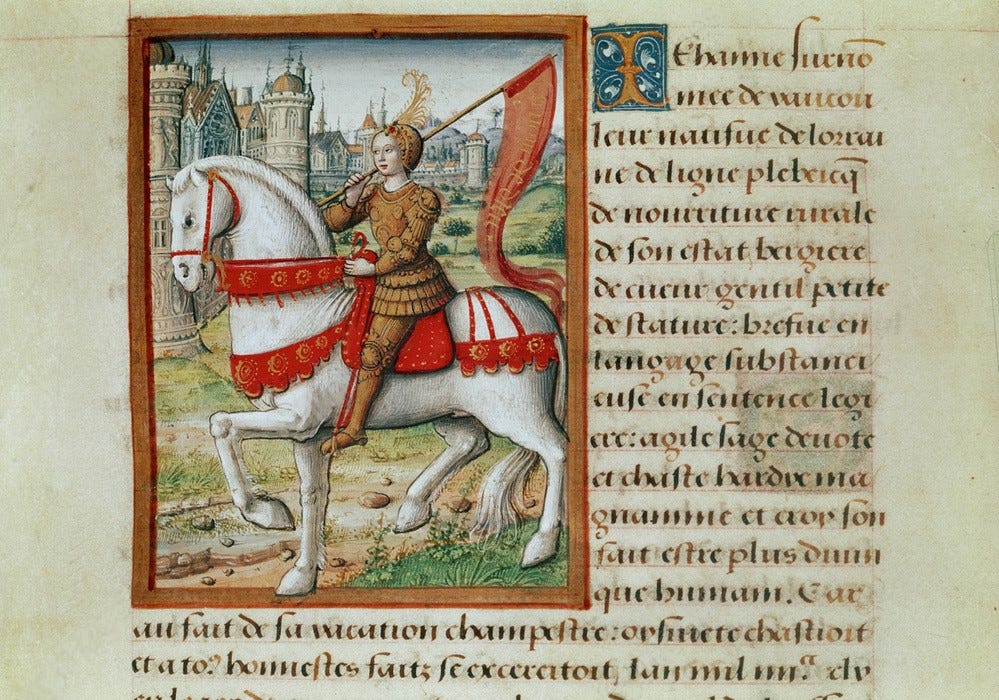 IEhanne surnō
mee de vaucou
leur natifue de lorrai
ne de ligne plebeicq̃
de nourriture rurale
de son estat bergiere
de cueur gentil petite
de stature: brefue en
langage substanci
euse en sentence legi
ere: agile sage deuote
et chaste hardye ma
gnanime et croy son
fait estre plus diuin
que humain. Car
au fait de sa vacation champestre: oysiuete chastioit
et a toꝰ honnestes faitz se excercitoit, lan mil